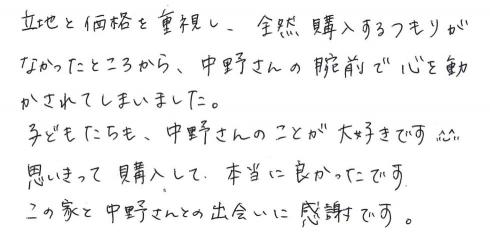 立地と価格を重視し、全然購入するつもりが
なかったところから、中野さんの腕前で心を動
かされてしまいました。
子どもたちも、中野さんのことが大好きです^^
思いきって購入して、本当に良かったです
この家と中野さんとの出会いに感謝です。